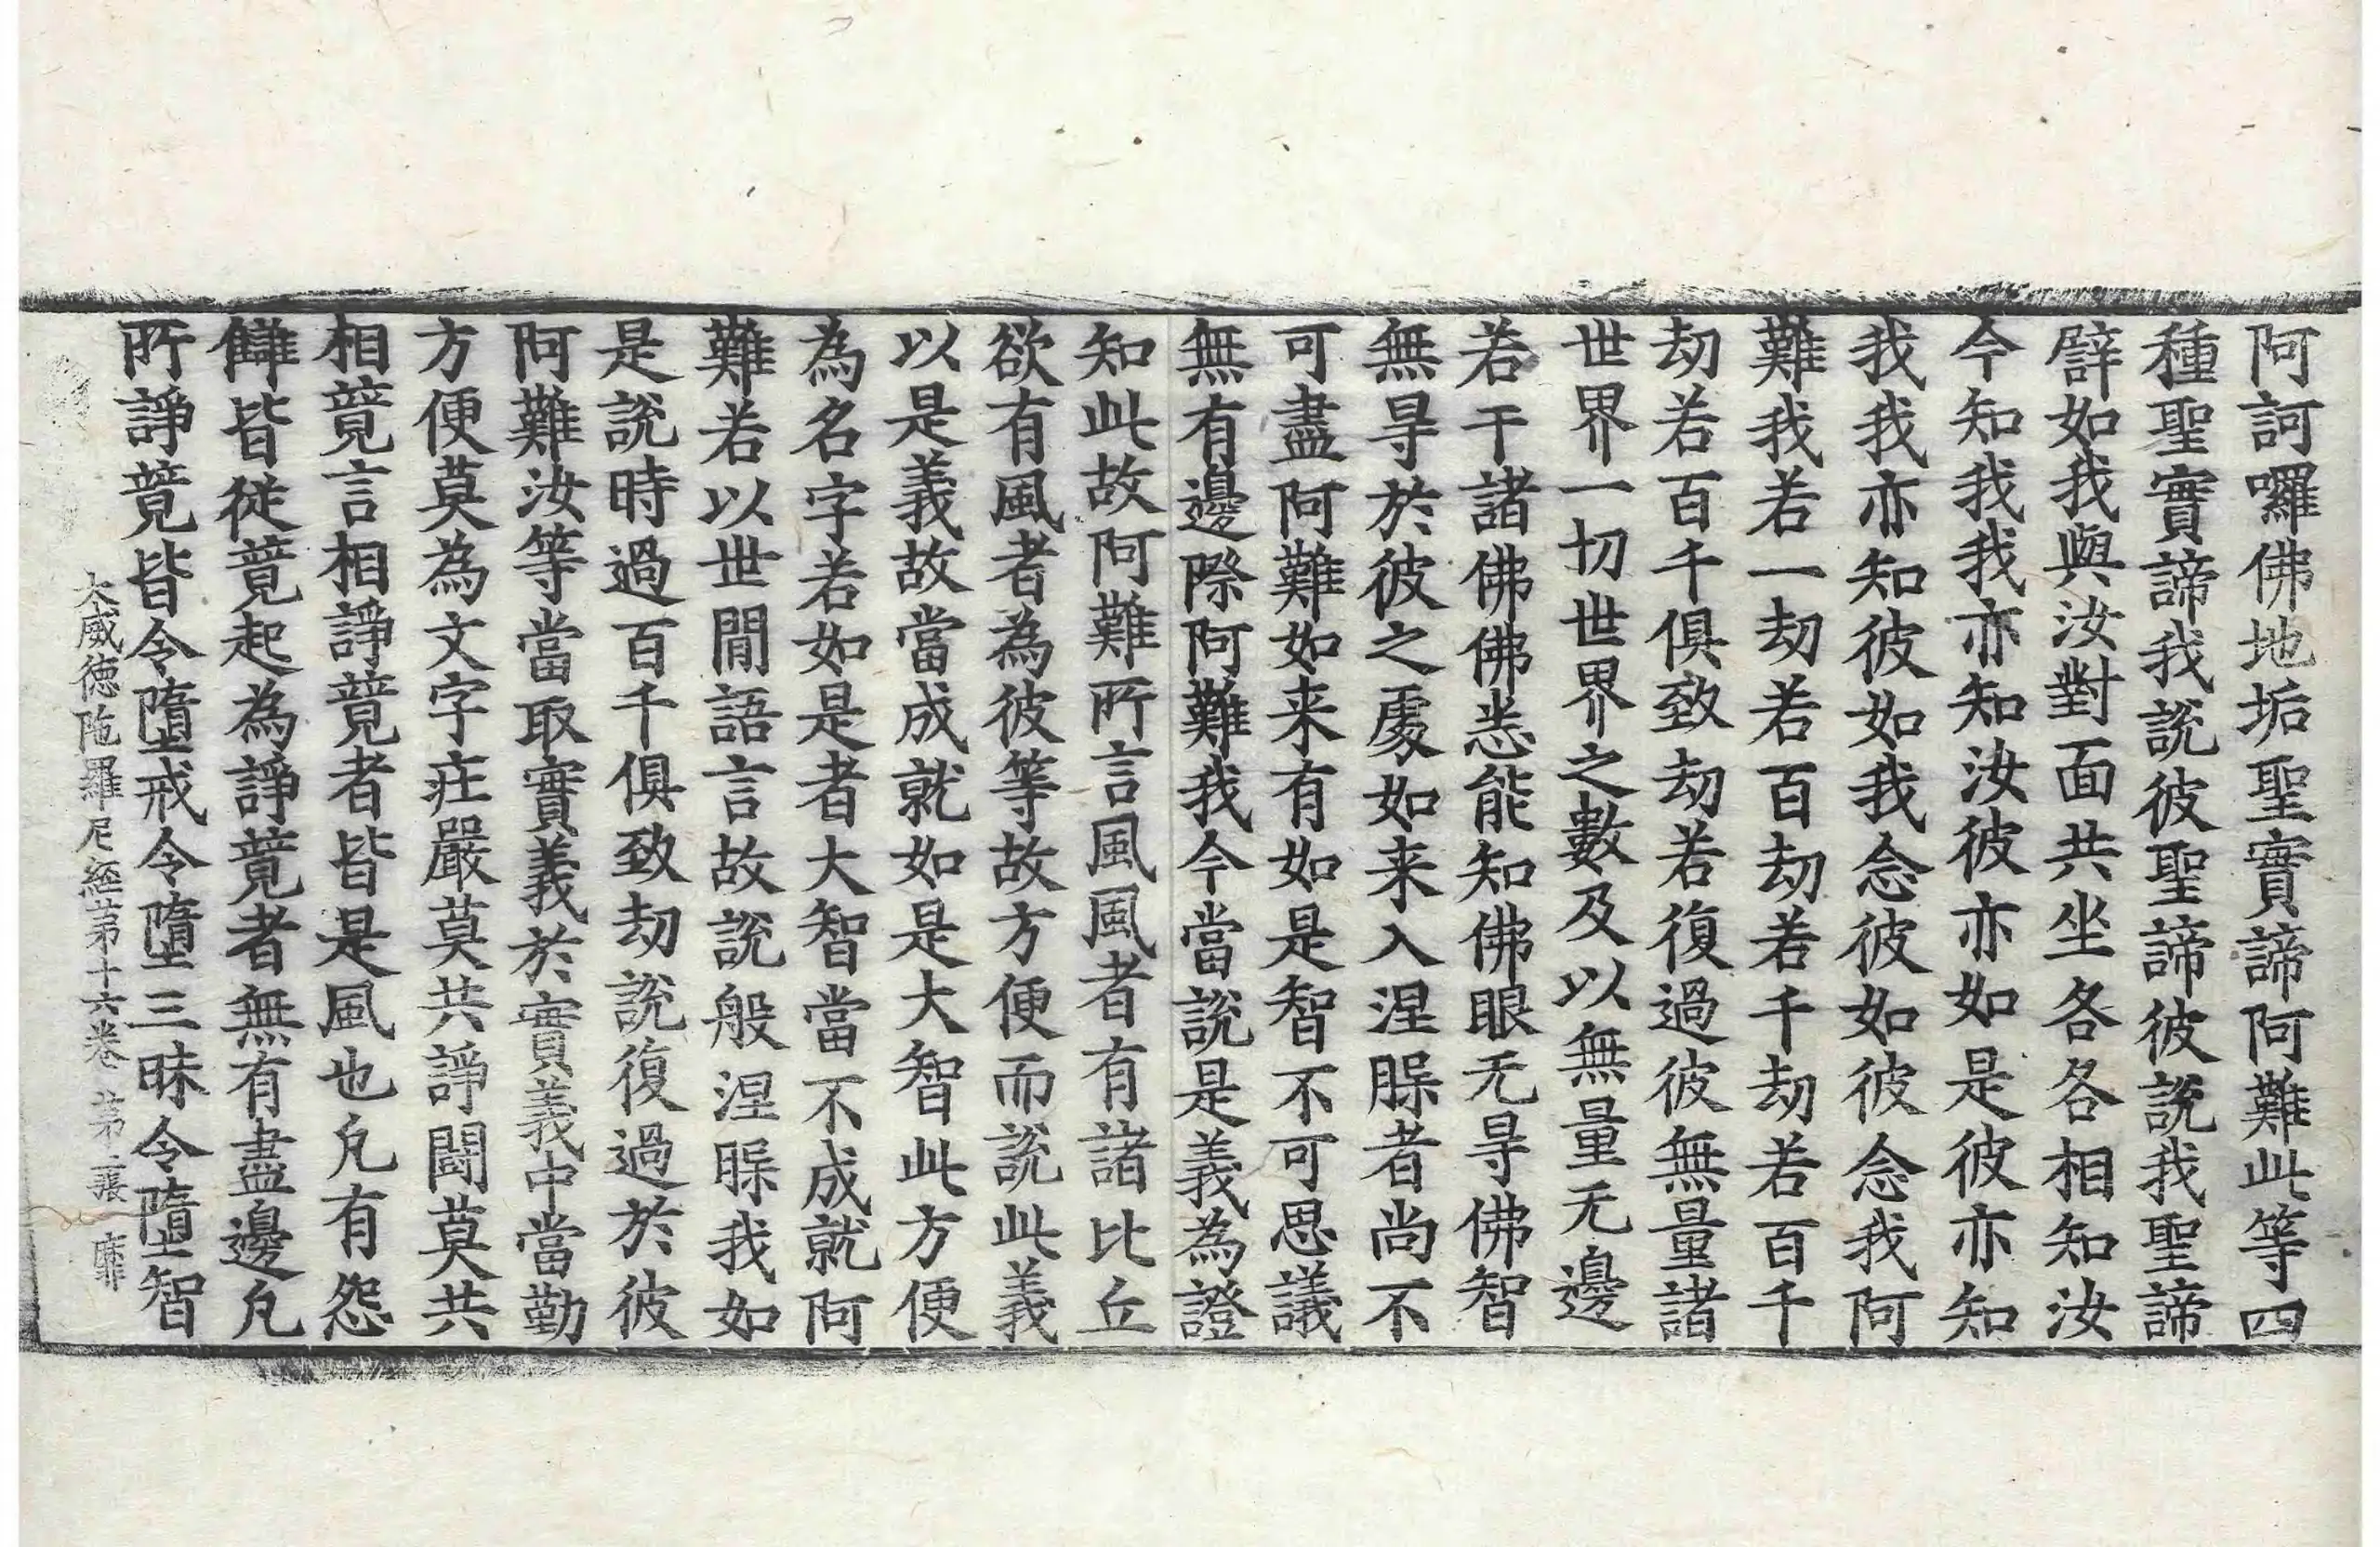 阿訶囉佛地垢聖實諦阿難此等四
種聖實諦我說彼聖諦彼說我聖諦
辟如我與汝對面共坐各各相知汝
今知我我亦知汝彼亦如是彼亦知
我我亦知彼如我念彼如彼念我阿
難我若一劫若百劫若千劫若百千
劫若百千俱致劫若復過彼無量諸
世界一切世界之數及以無量无邊
若干諸佛佛悉能知佛眼无㝵佛智
無㝵於彼之處如来入涅槃者尚不
可盡阿難如来有如是智不可思議
無有邊際阿難我今當說是義為證
知此故阿難所言風風者有諸比丘
欲有風者為彼等故方便而說此義
以是義故當成就如是大智此方便
為名字若如是者大智當不成就阿
難若以世間語言故說般涅槃我如
是說時過百千俱致劫說復過於彼
阿難汝等當取實義於實義中當勤
方便莫為文字莊嚴莫共諍鬪莫共
相競言相諍競者皆是風也凡有怨
讎皆從競起為諍競者無有盡邊凡
所諍競皆令墮戒令墮三昧令墮智
大威德陁羅尼經第十六卷 第二張 靡